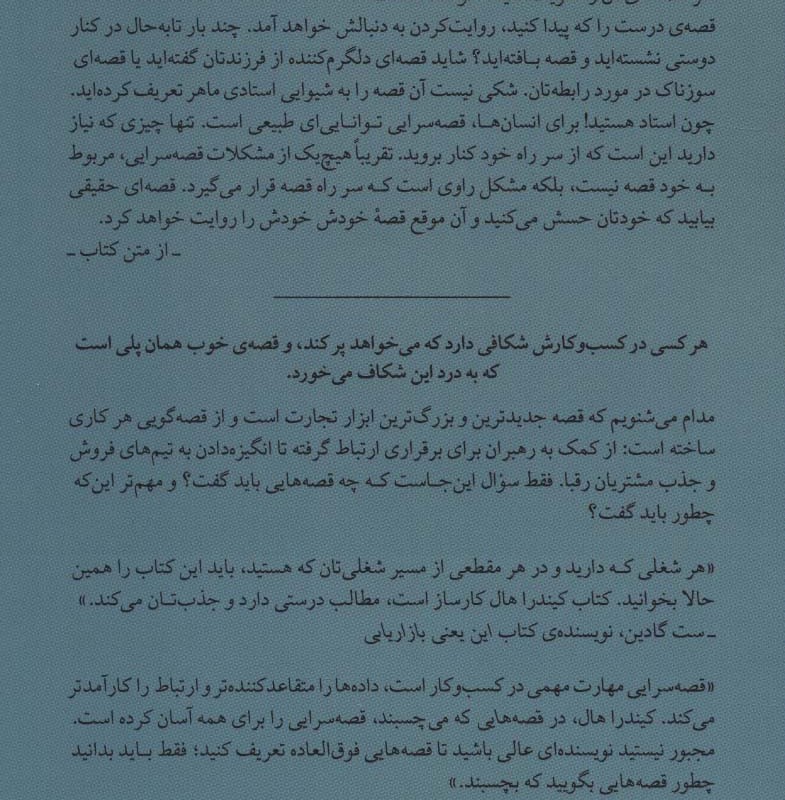 قصه‌ی درست را که پیدا کنید، روایت‌کردن به دنبالش خواهد آمد. چند بار تابه‌حال در کنار
دوستی نشسته‌اید و قصه بافته‌اید؟ شاید قصه‌ای دلگرم‌کننده از فرزندتان گفته‌اید یا قصه‌ای
سوزناک در مورد رابطه‌تان. شکی نیست آن قصه را به شیوایی استادی ماهر تعریف کرده‌اید.
چون استاد هستید! برای انسان‌ها، قصه‌سرایی توانایی‌ای طبیعی است. تنها چیزی که نیاز
دارید این است که از سر راه خود کنار بروید. تقریباً هیچ‌یک از مشکلات قصه‌سرایی، مربوط
به خود قصه نیست، بلکه مشکل راوی است که سر راه قصه قرار می‌گیرد. قصه‌ای حقیقی
بیابید که خودتان حسش می‌کنید و آن موقع قصهٔ خودش خودش را روایت خواهد کرد.
ـ از متن کتاب ـ
هر کسی در کسب‌وکارش شکافی دارد که می‌خواهد پر کند، و قصه‌ی خوب همان پلی است
که به درد این شکاف می‌خورد.
مدام می‌شنویم که قصه جدیدترین و بزرگ‌ترین ابزار تجارت است و از قصه‌گویی هر کاری
ساخته است: از کمک به رهبران برای برقراری ارتباط گرفته تا انگیزه‌دادن به تیم‌های فروش
و جذب مشتریان رقبا. فقط سؤال این‌جاست که چه قصه‌هایی باید گفت؟ و مهم‌تر این‌که
چطور باید گفت؟
«هر شغلی که دارید و در هر مقطعی از مسیر شغلی‌تان که هستید، باید این کتاب را همین
حالا بخوانید. کتاب کیندرا هال کارساز است، مطالب درستی دارد و جذب‌تان می‌کند.»
ـ ست گادین، نویسنده‌ی کتاب این یعنی بازاریابی
«قصه‌سرایی مهارت مهمی در کسب‌وکار است، داده‌ها را متقاعدکننده‌تر و ارتباط را کارآمدتر
می‌کند. کیندرا هال، در قصه‌هایی که می‌چسبند، قصه‌سرایی را برای همه آسان کرده است.
مجبور نیستید نویسنده‌ای عالی باشید تا قصه‌هایی فوق‌العاده تعریف کنید؛ فقط باید بدانید
چطور قصه‌هایی بگویید که بچسبند.»